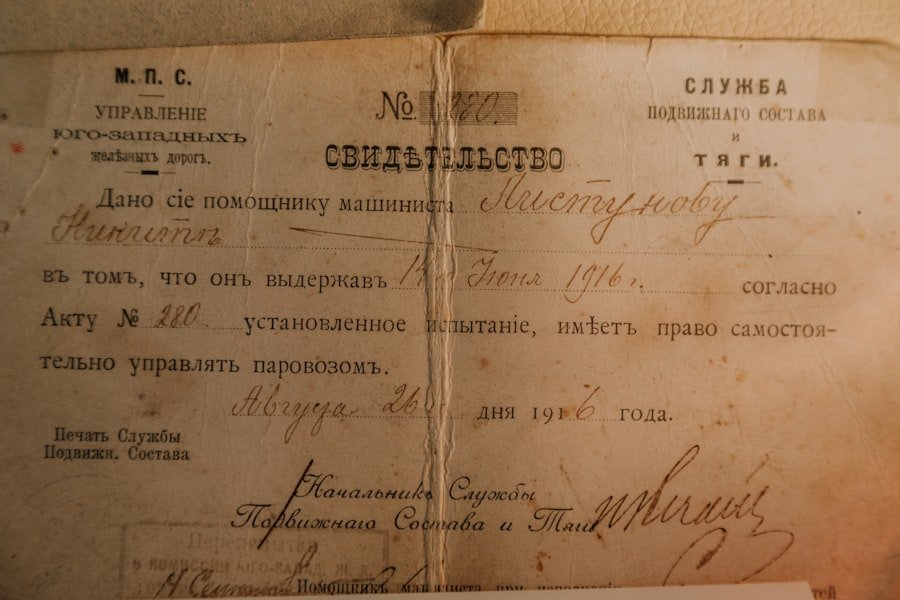 М. П. С.
УПРАВЛЕНІЕ
ЮГО-ЗАПАДНЫХЪ
желѣзныхъ дорогъ.
№ 280.
СЛУЖБА
ПОДВИЖНАГО СОСТАВА
и
ТЯГИ.
СВИДѢТЕЛЬСТВО
Дано сіе помощнику машиниста Пистунову
Никитѣ
въ томъ, что онъ выдержавъ 14 го Іюня 1916 г. согласно
Акту № 280 установленное испытаніе, имѣетъ право самостоя-
тельно управлять паровозомъ.
Августа 26 дня 1916 года.
Печать Службы
Подвижн. Состава
Начальникъ Службы
Подвижнаго Состава и Тяги
В КОМИССИИ ЮГО-ЗАПАД. Ж. Д.
Помощникъ машиниста при